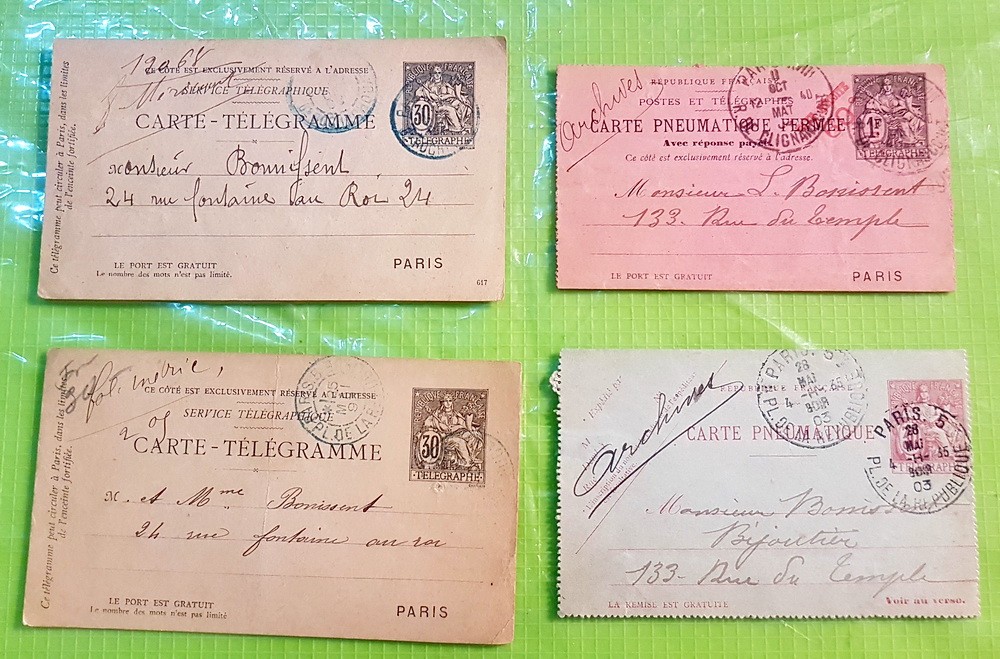 12968
CE CÔTÉ EST EXCLUSIVEMENT RÉSERVÉ A L'ADRESSE
SERVICE TÉLÉGRAPHIQUE
CARTE-TÉLÉGRAMME
RÉPUBLIQUE FRANÇAISE
30
TÉLÉGRAPHE
Monsieur Bonnissent
24 rue fontaine au Roi 24
Ce télégramme peut circuler à Paris, dans les limites
de l'enceinte fortifiée.
LE PORT EST GRATUIT
Le nombre des mots n'est pas limité.
PARIS
617
Archives
REPUBLIQUE FRANÇAISE
POSTES ET TÉLÉGRAPHES
CARTE PNEUMATIQUE FERMÉE
Avec réponse payée
Ce côté est exclusivement réservé à l'adresse.
1F
TÉLÉGRAPHE
OCT
MAT
Monsieur L. Bonissent
133- Rue du Temple
LE PORT EST GRATUIT
PARIS
CE CÔTÉ EST EXCLUSIVEMENT RÉSERVÉ A L'ADRESSE
SERVICE TÉLÉGRAPHIQUE
CARTE-TÉLÉGRAMME
30
TÉLÉGRAPHE
PL. DE LA
M. et Mme Bonissent
24 rue fontaine au roi
Ce télégramme peut circuler à Paris, dans les limites
de l'enceinte fortifiée.
LE PORT EST GRATUIT
Le nombre des mots n'est pas limité
PARIS
Archives
CARTE PNEUMATIQUE
TÉLÉGRAPHE
PARIS. 5
28
MAI
4 -H- 35
SOIR
03
PL. DE LA RÉPUBLIQUE
PARIS. 5
28
MAI
4 -H- 35
SOIR
03
PL. DE LA RÉPUBLIQUE
Monsieur
Bijoutier
133- Rue du Temple
LA REMISE EST GRATUITE
Voir au verso.